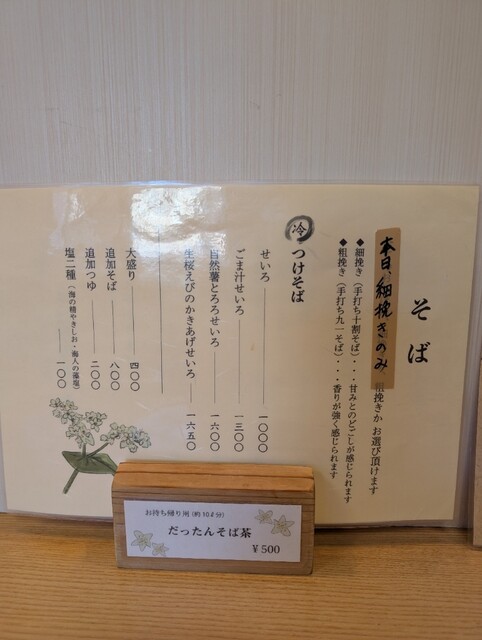 そば
本日、細挽きのみ
粗挽きか お選び頂けます
◆細挽き（手打ち十割そば）・・・甘みとのどごしが感じられます
◆粗挽き（手打ち九一そば）・・・香りが強く感じられます
冷 つけそば
せいろ 一〇〇〇
ごま汁せいろ 一三〇〇
自然薯とろろせいろ 一六〇〇
生桜えびのかきあげせいろ 一六五〇
大盛り 四〇〇
追加そば 八〇〇
追加つゆ 二〇〇
塩二種（海の精やきしお・海人の藻塩） 一〇〇
お持ち帰り用（約10ℓ分）
だったんそば茶
¥500